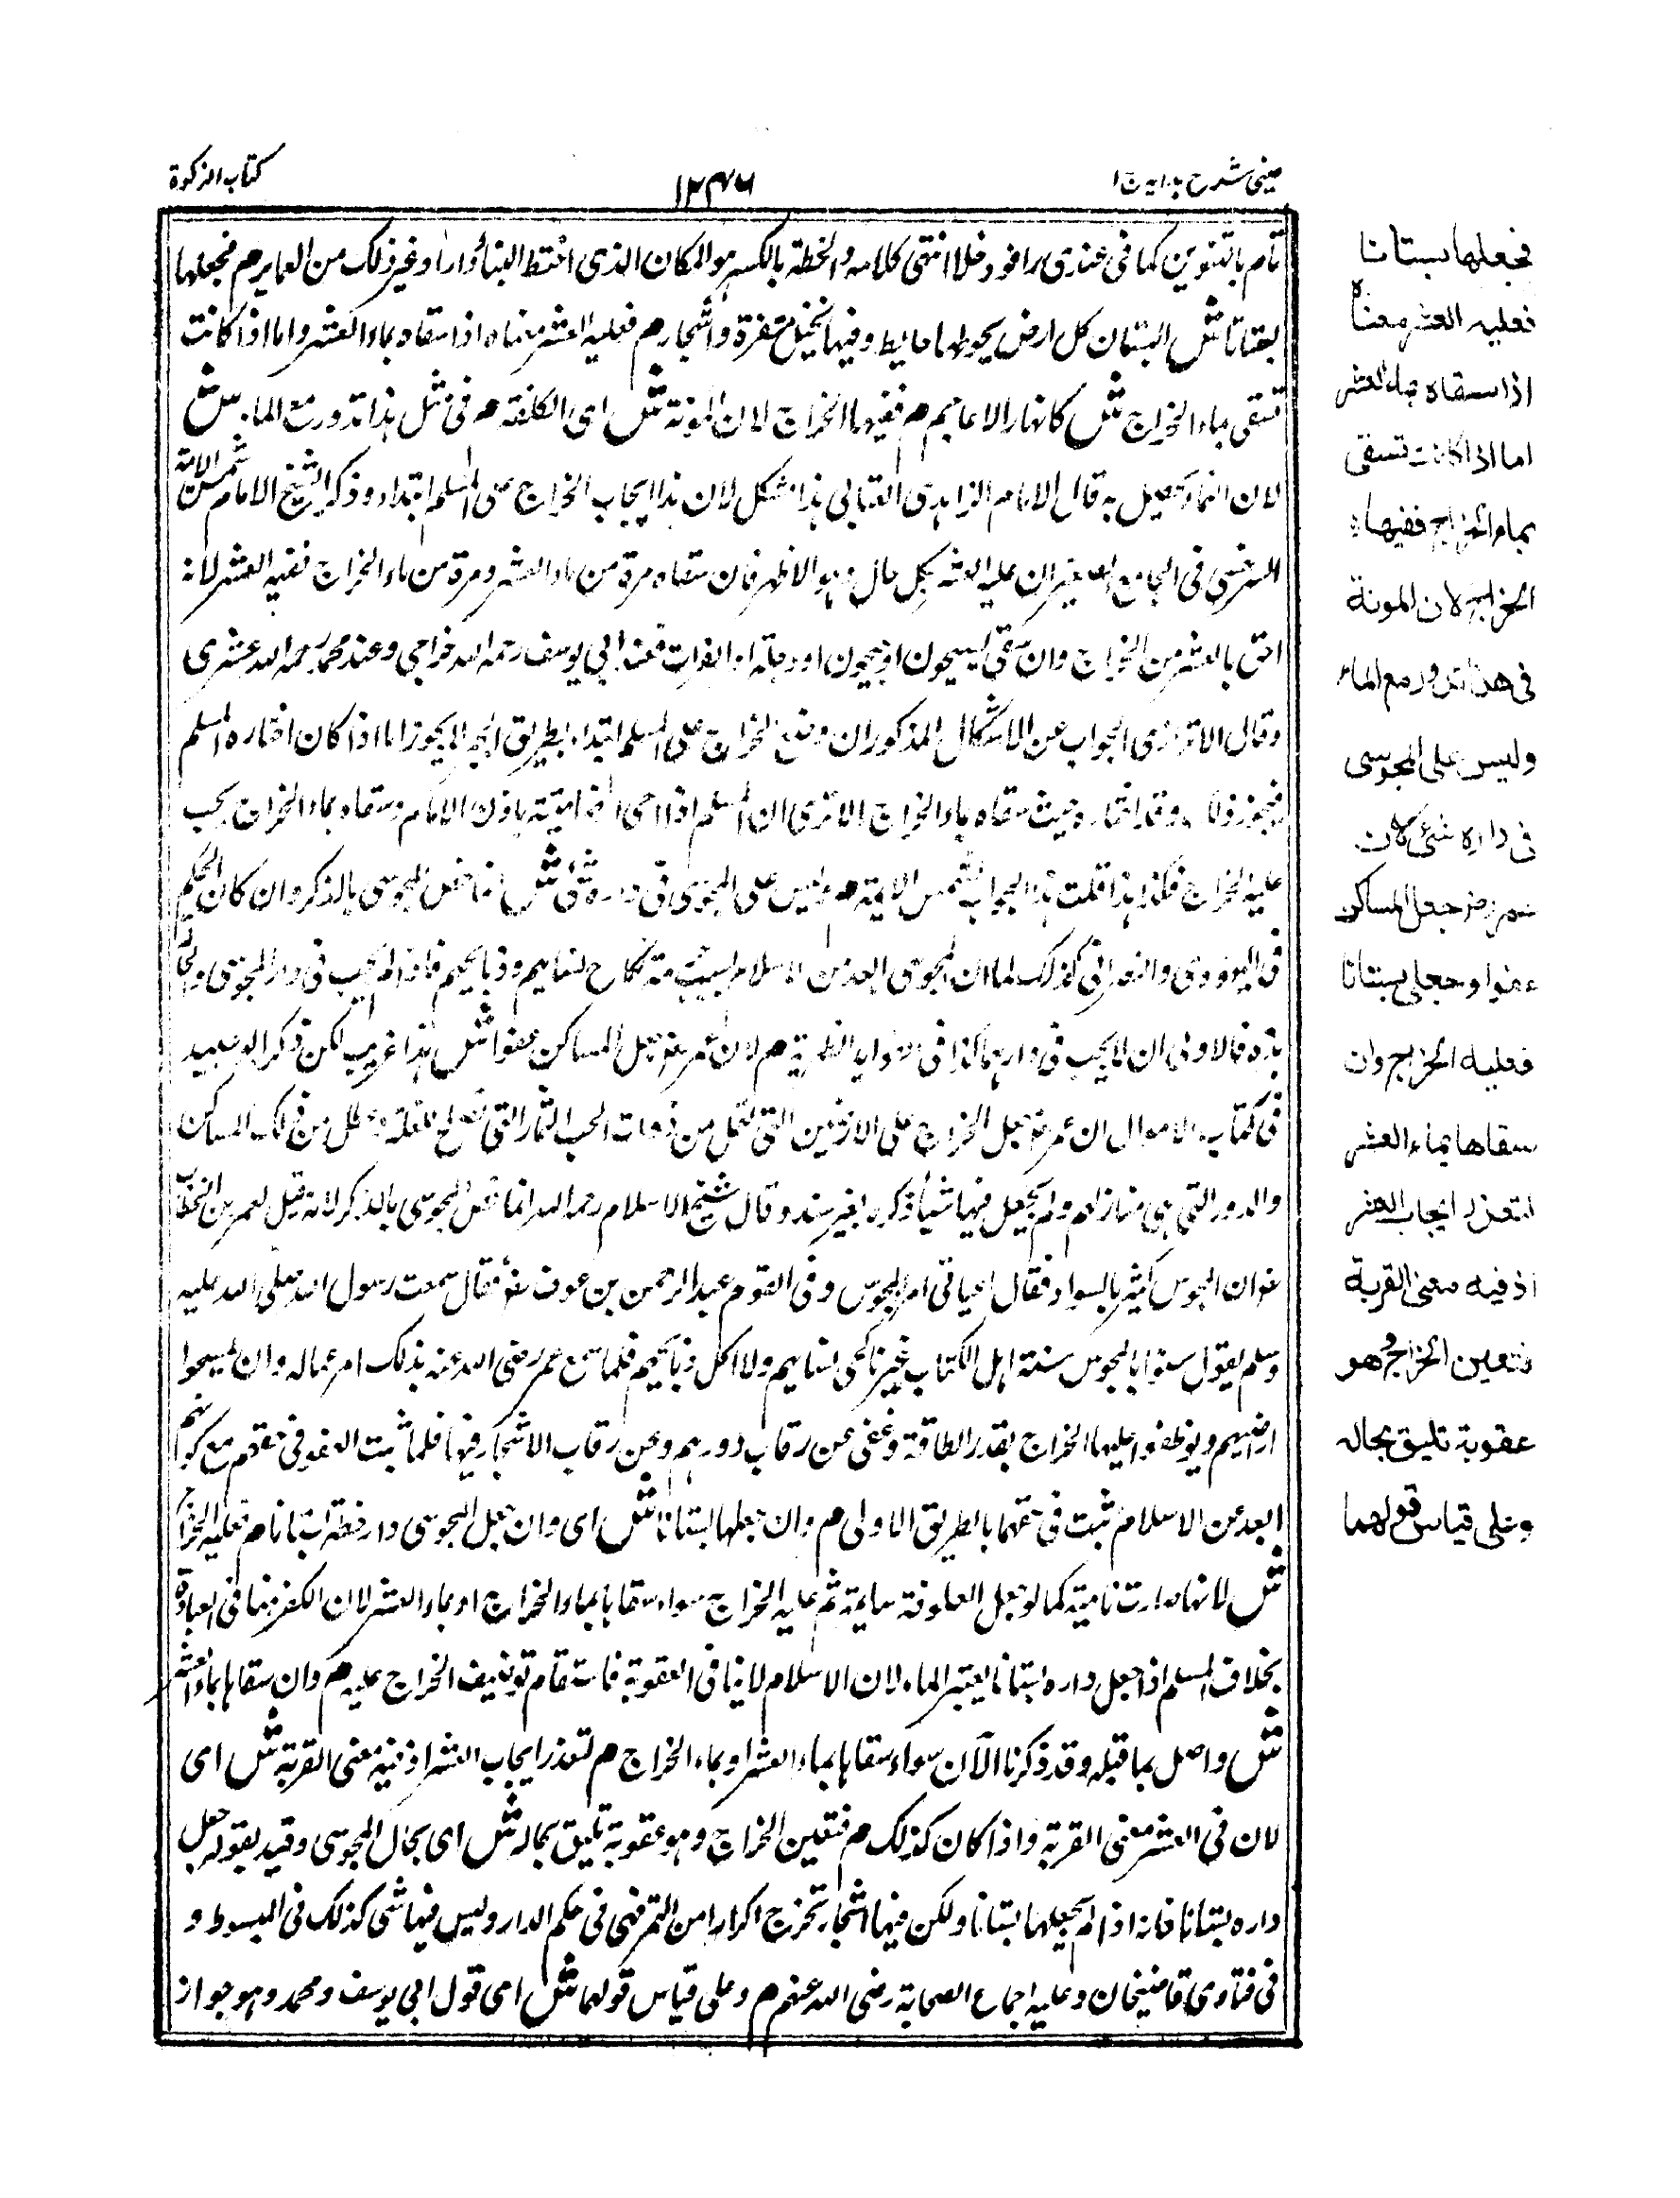 عینی شرح ہدایہ ج ۱
۱۲۴۶
کتاب الزکوة
تام بالتنوین کما فی عندی راقود خلا انتهی کلامه والخطة بالکسر هو المکان الذی اختط البناء دارا او غیر ذلک من العمایر م فجعلها
بستانا ش البستان کل ارض یحوطها حایط وفیها نخیل متفرقة واشجار م فعلیه العشر معناه اذا سقاه بماء العشر واما اذا کانت
تسقی بماء الخراج ش کانهار الاعاجم م ففیها الخراج لان المونة ش ای الکلفة م فی مثل هذا تدور مع الماء ش
لان النماء یحصل به قال الامام الزاهدی العتابی هذا مشکل لان هذا ایجاب الخراج علی المسلم ابتداء وذکر الشیخ الامام شمس الایمة
السرخسی فی الجامع الصغیر ان علیه العشر بکل حال وهو الاظهر فان سقاه مرة من ماء العشر ومرة من ماء الخراج ففیه العشر لانه
احق بالعشر من الخراج وان سقی لسیحون او جیحون او دجلة او الفرات فعند ابی یوسف رحمه الله خراجی وعند محمد رحمه الله عشری
وقال الاترازی الجواب عن الاشکال المذکور ان وضع الخراج علی المسلم ابتداء بطریق الجبر لا یجوز اما اذا کان اختاره المسلم
فیجوز ذلک وقد اختاره حیث سقاه بماء الخراج الا تری ان المسلم اذا احی ارضا میتة باذن الامام وسقاه بماء الخراج یجب
علیه الخراج فکذا هذا قلت هذا الجواب لشمس الایمة م ولیس علی المجوسی فی داره شیٔ ش انما خص المجوسی بالذکر وان کان الحکم
فی الیهودی والنصرانی کذلک لما ان المجوسی ابعد من الاسلام بسبب حرمة نکاح نسایهم وذبایحهم فاذا لم یجب فی دار المجوسی والحالة
هذه فالاولی ان لا یجب فی دارهما کذا فی الفواید الظهیریة م لان عمر رضه جعل المساکن عفوا ش هذا غریب لکن ذکر ابو عبید
فی کتاب الاموال ان عمر رضه جعل الخراج علی الارضین التی تغل من ذوات الحب الثمار التی تصلح للغلة وعطل من ذلک المساکن
والدور التی هی منازلهم ولم یجعل فیها شیأ ذکره بغیر سند وقال شیخ الاسلام رحمه الله انما خص المجوسی بالذکر لانه قیل لعمر بن الخطاب
رضه ان المجوس کثیر بالسواد فقال اعیانی امر المجوس وفی القوم عبدالرحمن بن عوف رضه فقال سمعت رسول الله صلی الله علیه
وسلم یقول سنوا بالمجوس سنة اهل الکتاب غیر ناکحی نسایهم ولا اکل ذبایحهم فلما سمع عمر رضی الله عنه بذلک امر عماله وان یمسحوا
اراضیهم ویوظفوا علیها الخراج بقدر الطاقة وعفی عن رقاب دورهم وعن رقاب الاشجار فیها فلما ثبت العفو فی حقهم مع کونهم
ابعد عن الاسلام ثبت فی حقهما بالطریق الاولی م وان جعلها بستانا ش ای وان جعل المجوسی دار خطة بستانا م فعلیه الخراج
ش لانها صارت نامیة کما لو جعل العلوفة سایمة ثم علیه الخراج سواء سقاها بماء الخراج او بماء العشر لان الکفر ینافی العبادة
بخلاف المسلم اذا جعل داره بستانا یعتبر الماء لان الاسلام لا ینافی العقوبة فاستقام توظیف الخراج علیه م وان سقاها بماء العشر
ش واصل بما قبله وقد ذکرنا الآن سواء سقاها بماء العشر او بماء الخراج م لتعذر ایجاب العشر اذ فیه معنی القربة ش ای
لان فی العشر معنی القربة واذا کان کذلک م فتعین الخراج وهو عقوبة تلیق بحاله ش ای بحال المجوسی وقید بقوله جعل
داره بستانا فانه اذا لم یجعلها بستانا ولکن فیها اشجار تخرج اکرارا من التمر فهی فی حکم الدار ولیس فیها شی کذلک فی المبسوط و
فی فتاوی قاضیخان وعلیه اجماع الصحابة رضی الله عنهم م وعلی قیاس قولهما ش ای قول ابی یوسف ومحمد وهو جواز
فجعلها بستانا
فعلیه العشر معناه
اذا سقاه بماء العشر
اما اذا کانت تسقی
بماء الخراج ففیها
الخراج لان المونة
فی هذا تدور مع الماء
ولیس علی المجوسی
فی داره شئ لان
عمر رضه جعل المساکن
عفوا وجعلها بستانا
فعلیه الخراج وان
سقاها بماء العشر
لتعذر ایجاب العشر
اذ فیه معنی القربة
فتعین الخراج وهو
عقوبة تلیق بحاله
وعلی قیاس قولهما